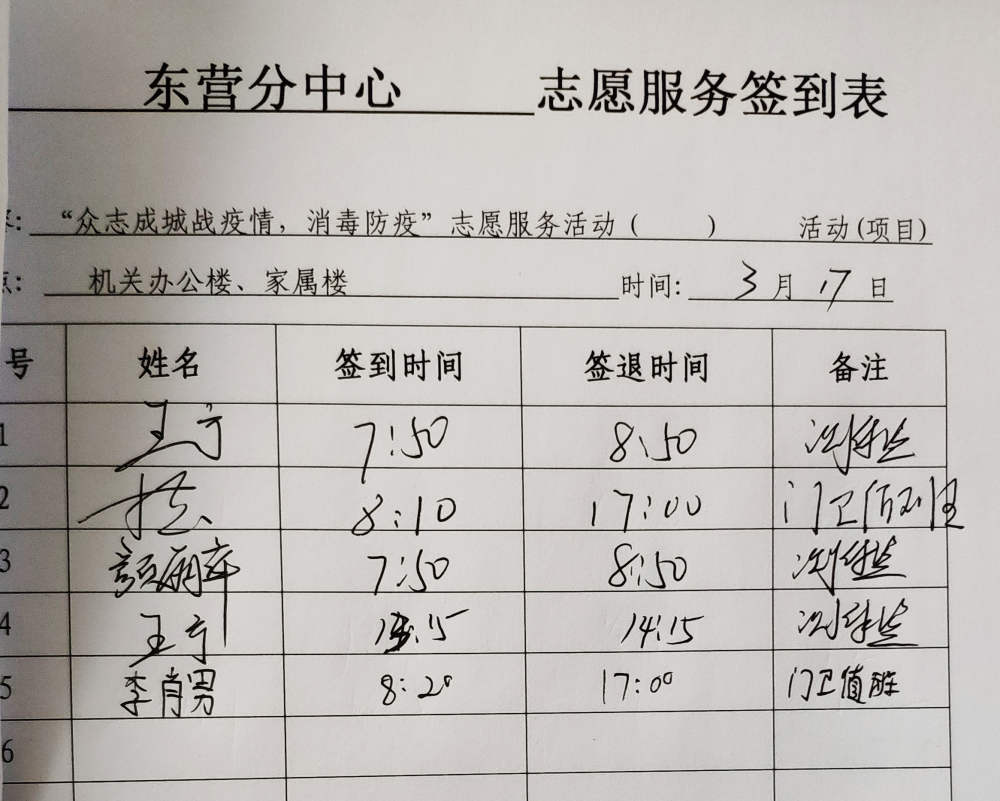 东营分中心 志愿服务签到表
：“众志成城战疫情，消毒防疫”志愿服务活动（ ） 活动(项目)
点： 机关办公楼、家属楼 时间: 3月17日
号 姓名 签到时间 签退时间 备注
1 王宁 7:50 8:50 测体温
2 8:10 17:00 门卫值班
3 7:50 8:50 测体温
4 王宁 14:15 测体温
5 李肖男 8:20 17:00 门卫值班
6